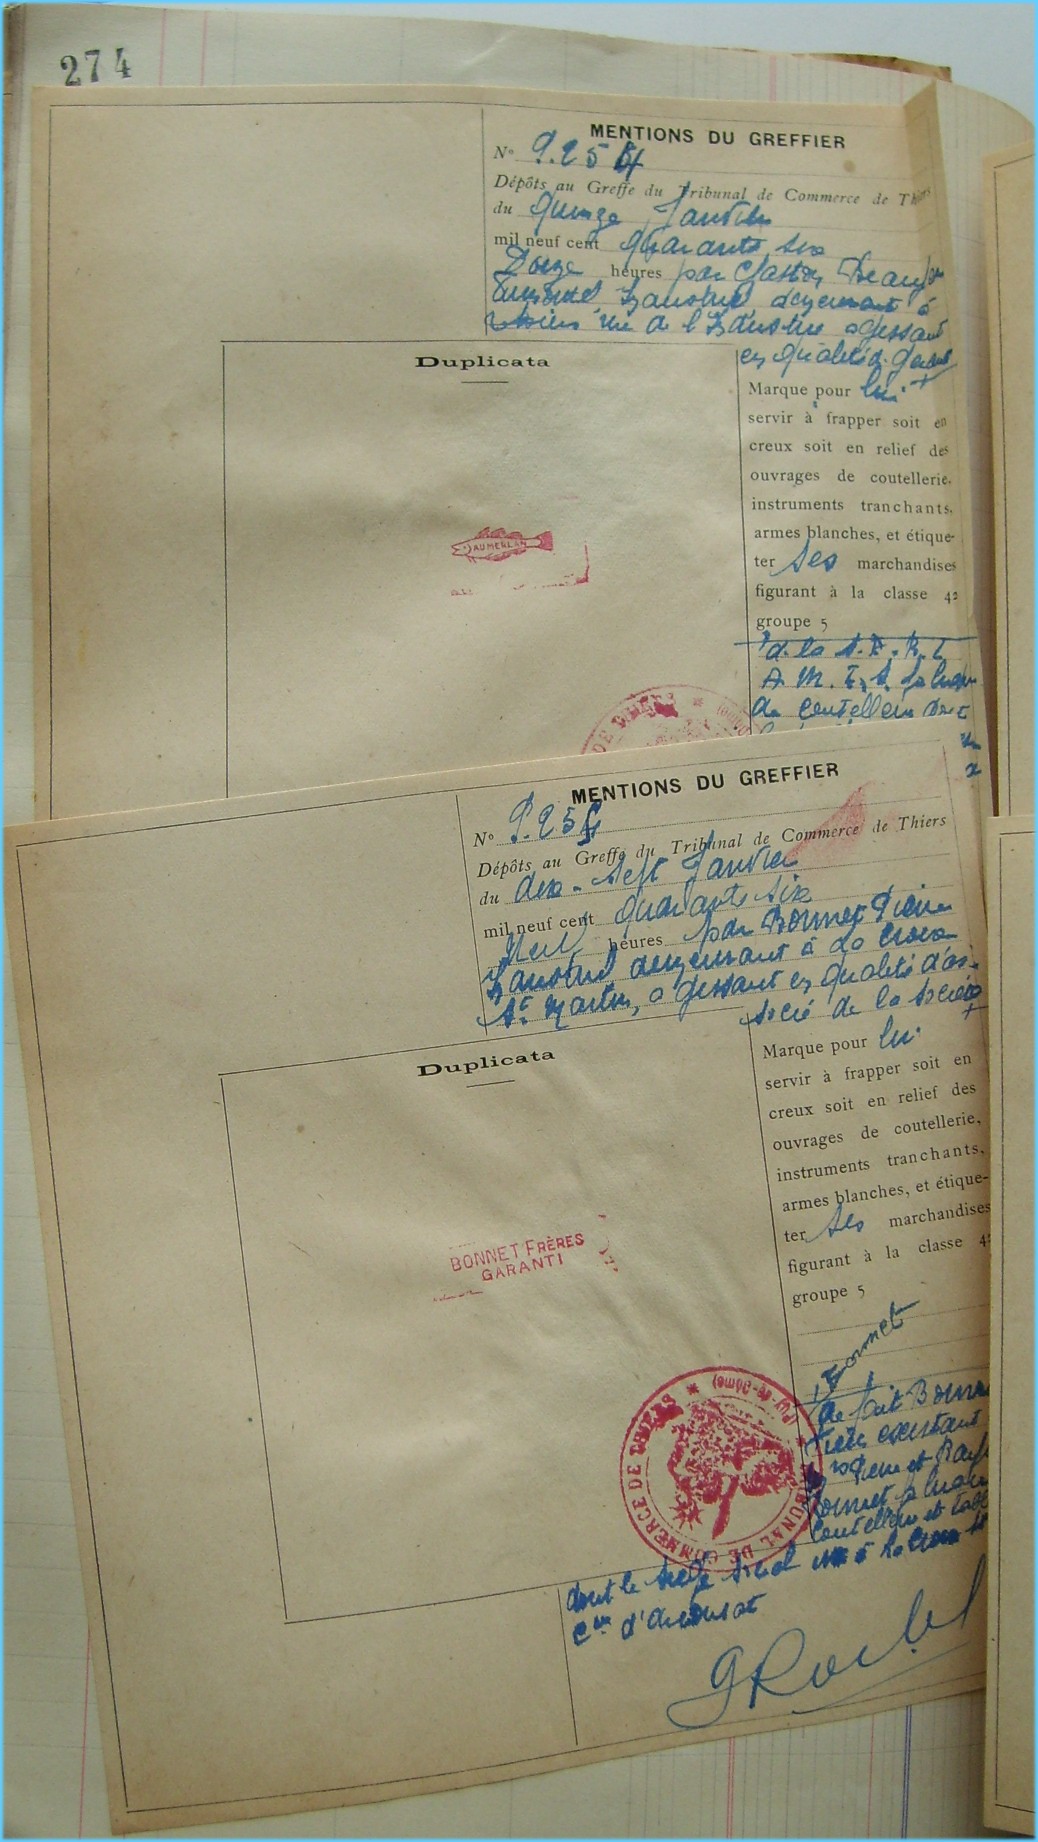 274
MENTIONS DU GREFFIER
N°
Dépôts au Greffe du Tribunal de Commerce de Thiers
du quinze Janvier
mil neuf cent quarante six
heures par
demeurant à
rue de l'Industrie agissant
en qualité de gérant
Duplicata
Marque pour lui
servir à frapper soit en
creux soit en relief des
ouvrages de coutellerie,
instruments tranchants,
armes blanches, et étique-
ter ses marchandises
figurant à la classe 42
groupe 5
de la S.A.R.L
de coutellerie dont
AU MERLAN
DE THIERS
MENTIONS DU GREFFIER
N°
Dépôts au Greffe du Tribunal de Commerce de Thiers
du dix-sept Janvier
mil neuf cent quarante six
heures par Bonnet Pierre
Industriel demeurant à La Croix
St Martin, agissant en qualité d'as-
socié de la Société
Duplicata
Marque pour lui
servir à frapper soit en
creux soit en relief des
ouvrages de coutellerie,
instruments tranchants,
armes blanches, et étique-
ter ses marchandises
figurant à la classe 42
groupe 5
BONNET FRÈRES
GARANTI
Bonnet
de fait
existant
Pierre et
Bonnet
TRIBUNAL DE COMMERCE DE THIERS * (Puy-de-Dôme) *
dont le siège social est à la Croix St
cne d'